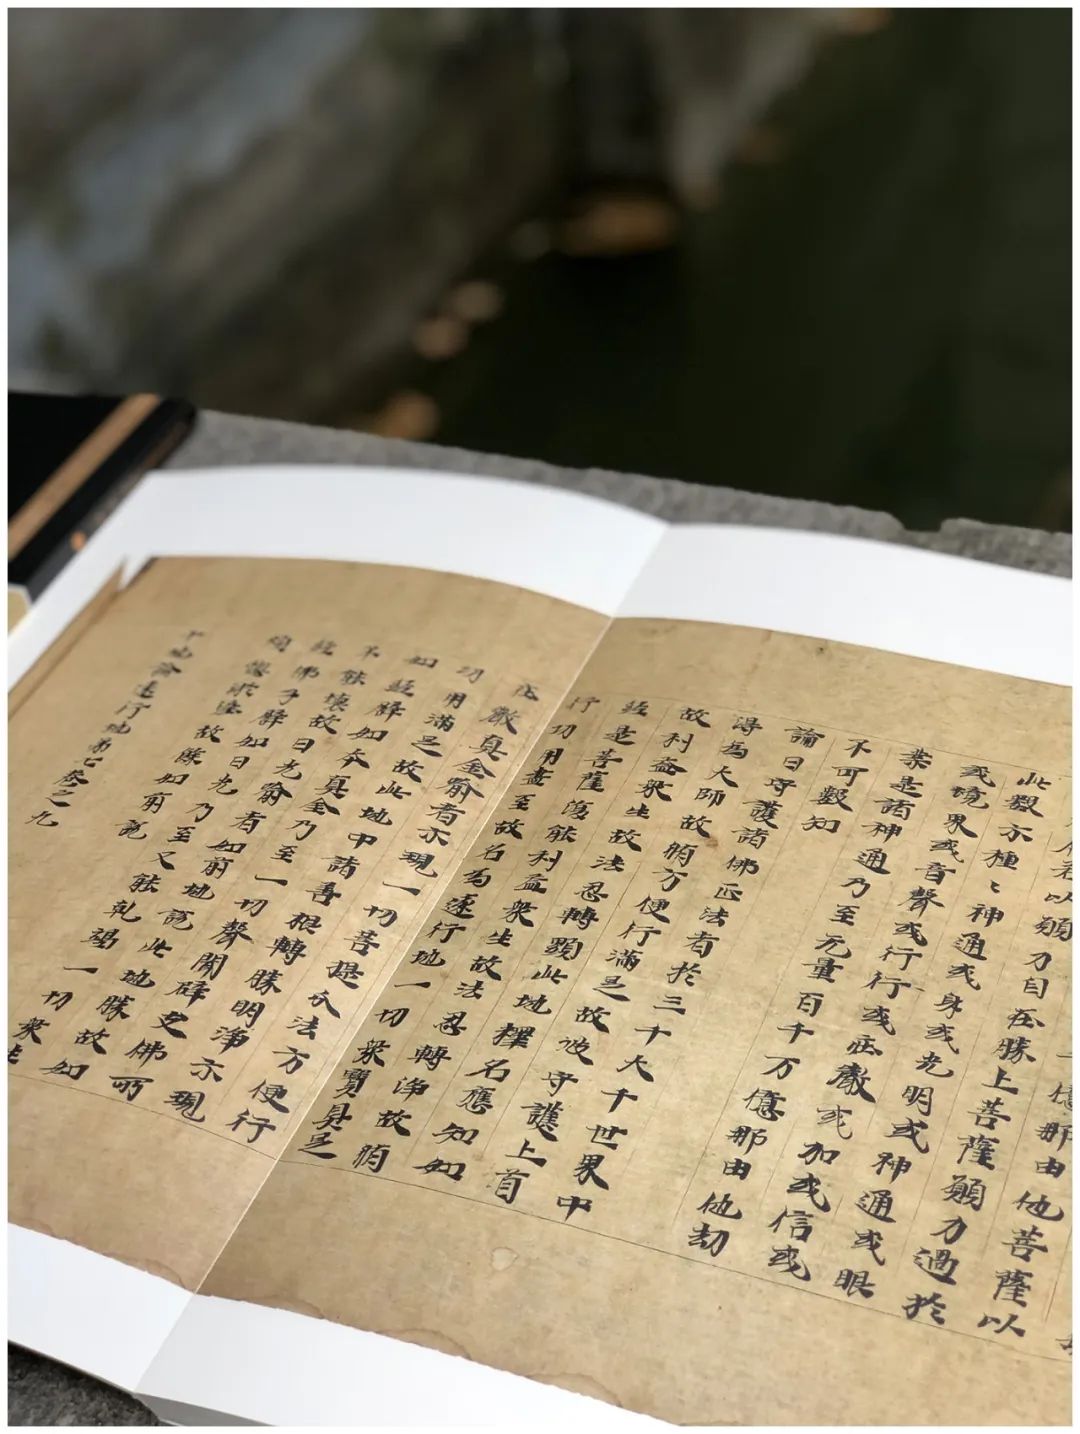 億那由他菩薩以
若以願力自在勝上菩薩願力過於
此數示種〻神通或身或光明或神通或眼
或境界或音聲或行行或莊嚴或加或信或
業是諸神通乃至无量百千万億那由他劫
不可數知
論曰守護諸佛正法者於三千大千世界中
得為大師故脩方便行滿足故彼守護上首
故利益衆生故法忍轉顯此地釋名應知如
經是菩薩復能利益衆生故法忍轉淨故脩
行功用盡至故名為遠行地一切衆寶具足
莊嚴真金喻者示現一切菩提分法方便行
功用滿足故此地中諸善根轉勝明淨示現
如經解如本真金乃至一切聲聞辟支佛所
不能壞故日光喻者如前地說此地勝故如
經佛子解如日光乃至又能乾竭一切衆生
煩惱淤埿故餘如前說
十地論遠行地第七卷之九